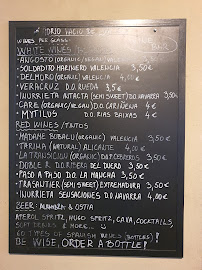 VACIO DE
WINES PER GLASS
WHITE WINES
· ANGOSTO (ORGANIC/VEGAN) VALENCIA 3,50€
· SOLDADITO MARINERO VALENCIA 3,50€
· DELMORO (ORGANIC/VEGAN) 4,00€
· VERACRUZ D.O. RUEDA 3,50€
· INURRIETA (SEMI SWEET) D.O. NAVARRA 3,50€
· CARE (ORGANIC/VEGAN) D.O. CARIÑENA 4€
· MYTILUS D.O. RIAS BAIXAS 4€
RED WINES / TINTOS
· MADAME BOBALU (ORGANIC) VALENCIA 3,50€
· TARIMA (NATURAL) ALICANTE 4€
· LA TRANSICION (ORGANIC) 3,50€
· DOBLE R D.O. RIBERA DEL DUERO 3,50€
· PASO A PASO D.O. LA MANCHA 3,50€
· TRASAUTIER (SEMI SWEET) EXTREMADURA 3,50€
· INURRIETA SENSACIONES D.O. NAVARRA 4€
BEER: ALHAMBRA & OSTIA
APEROL SPRITZ, HUGO SPRITZ, CAVA, COCKTAILS,
SOFT DRINKS & MORE...
60 TYPES OF SPANISH WINES (BOTTLES)!
BE WISE, ORDER A BOTTLE!